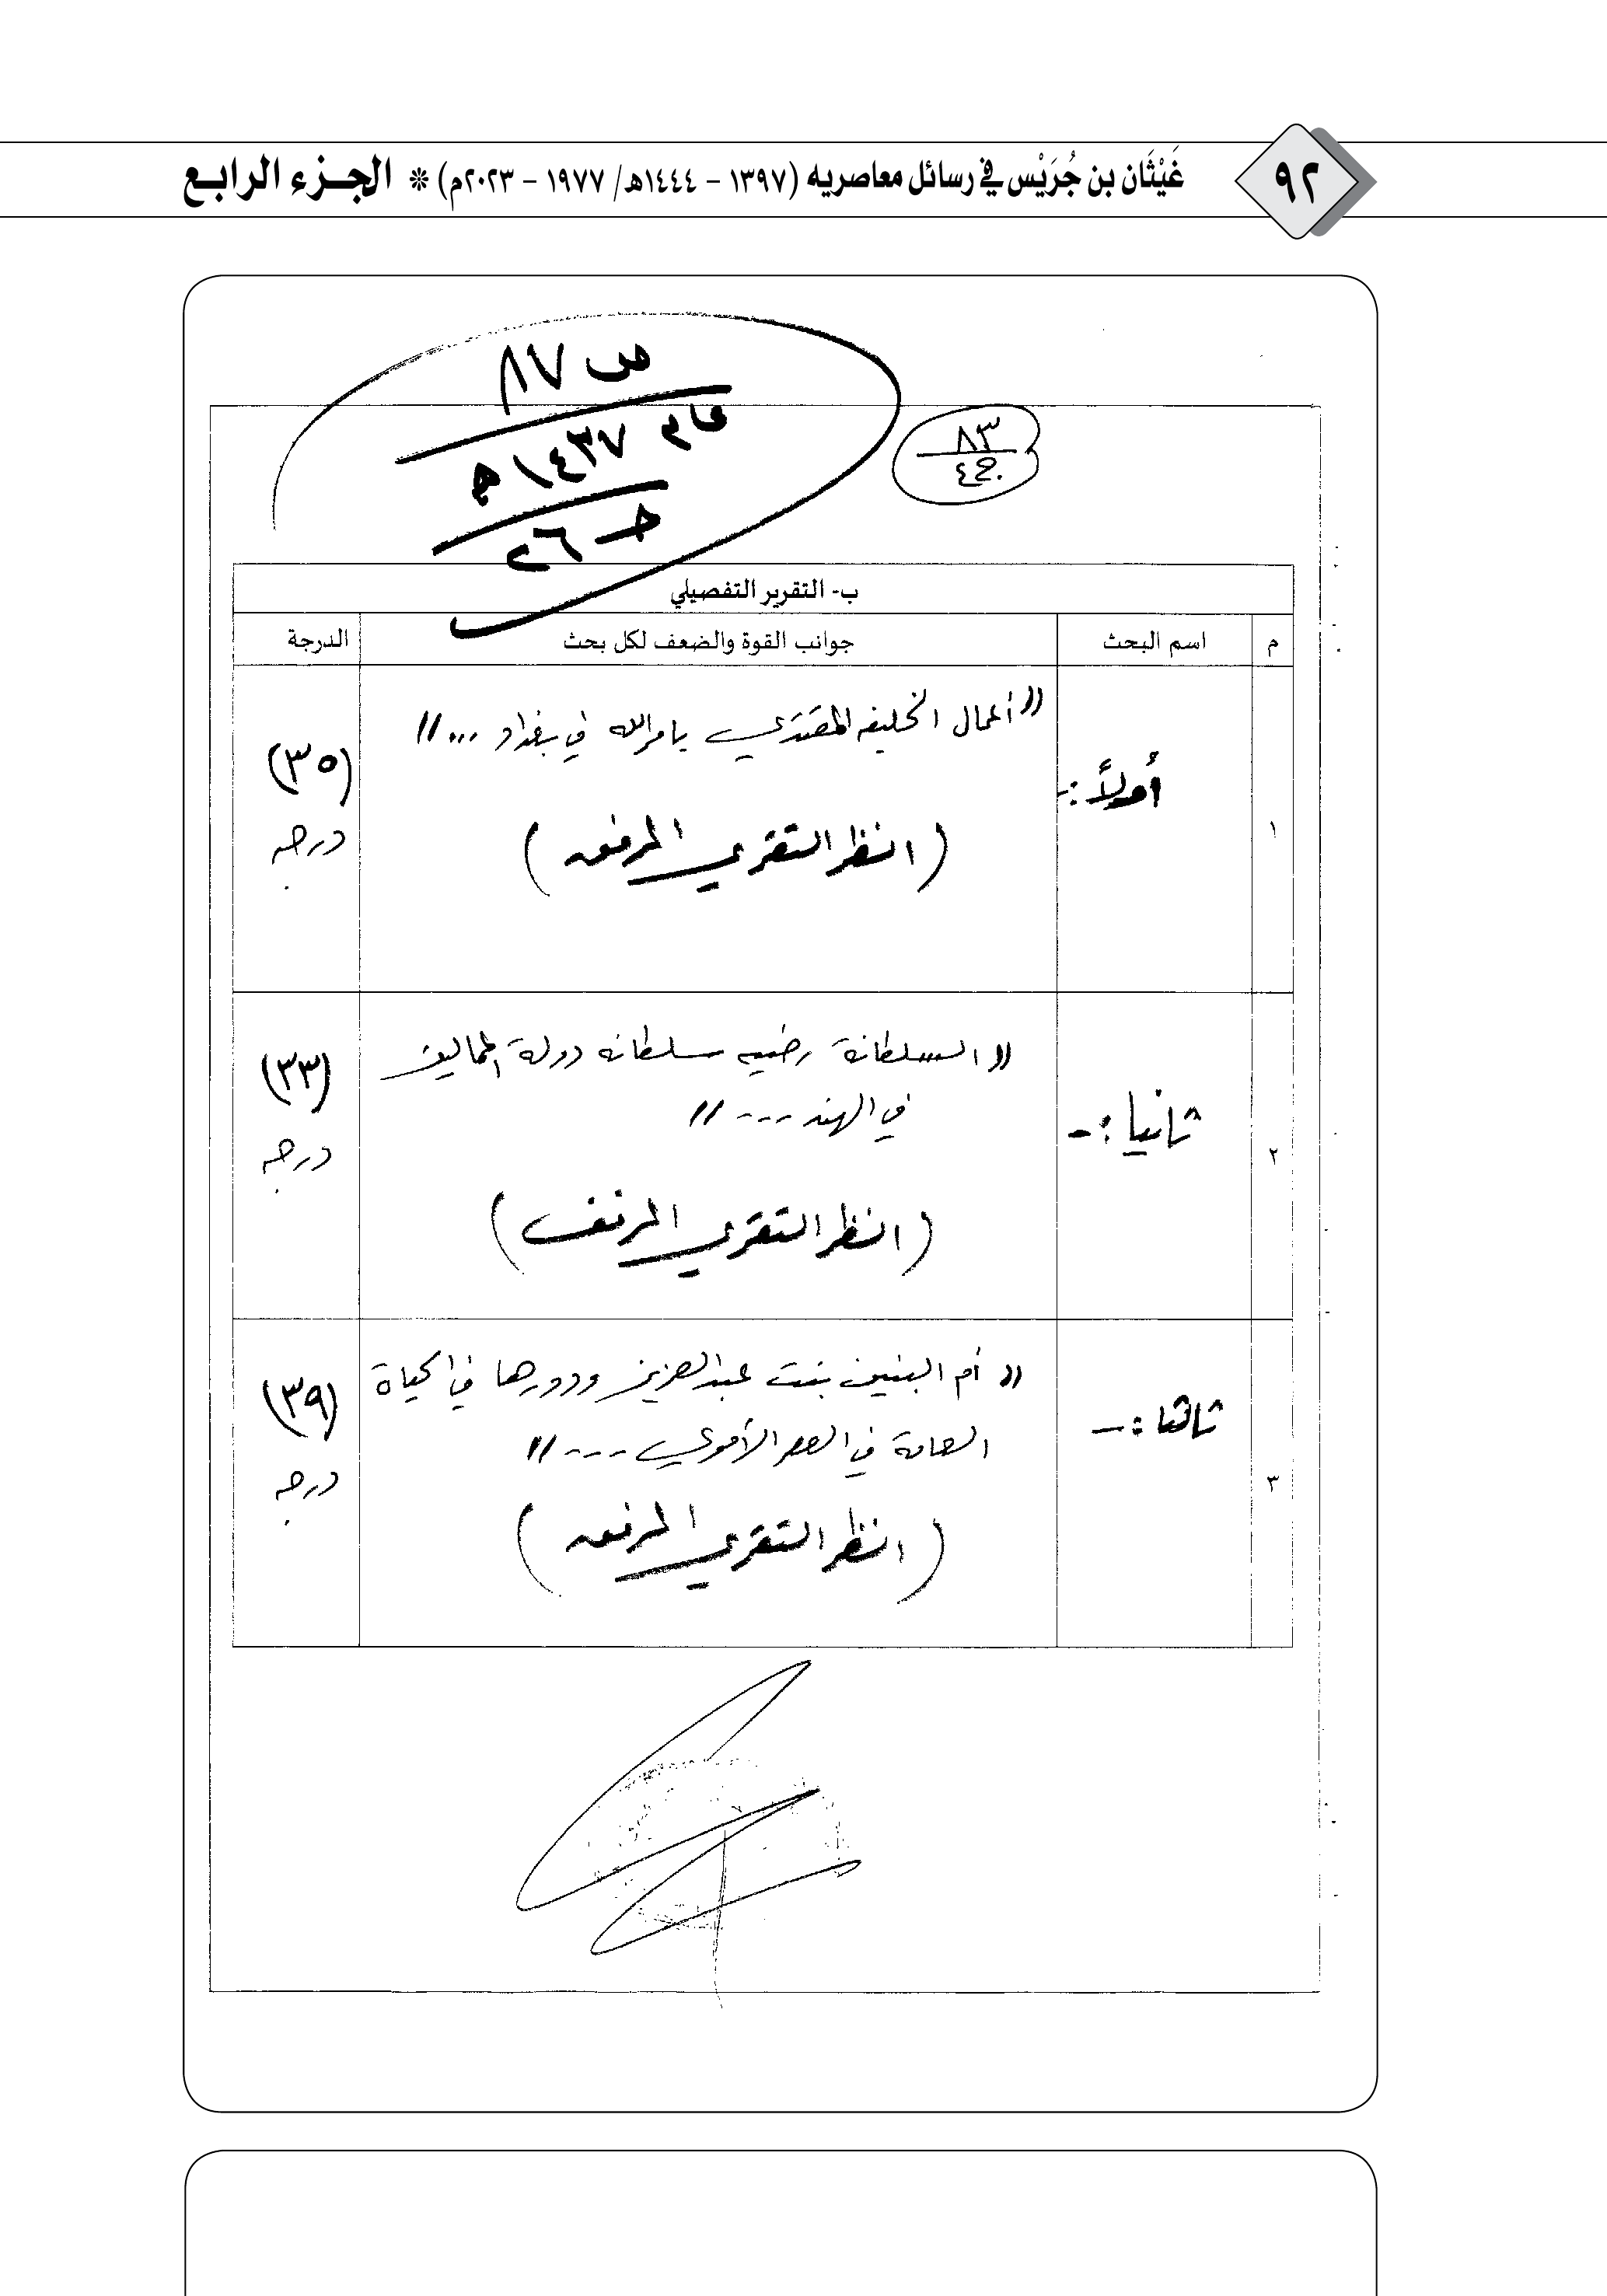 ٩٢
غَيْثَان بن جُرَيْس في رسائل معاصريه (١٣٩٧ - ١٤٤٤هـ/ ١٩٧٧ - ٢٠٢٣م) * الجزء الرابع
س ٨٧
عام ١٤٣٧هـ
حـ ٢٦
٨٣
ج٤
ب- التقرير التفصيلي
م اسم البحث جوانب القوة والضعف لكل بحث الدرجة
١ أولاً :-
"أعمال الخليفه المقتدي بامر الله في بغداد ..."
(انظر التقرير المرفق)
(٣٥)
درجه
٢ ثانيا :-
"السلطانة رضيه سلطانه دولة المماليك
في الهند ---"
(انظر التقرير المرفق)
(٣٣)
درجه
٣ ثالثا :-
"أم البنين بنت عبدالعزيز ودورها في الحياة
العامة في العصر الأموي ---"
(انظر التقرير المرفق)
(٣٩)
درجه